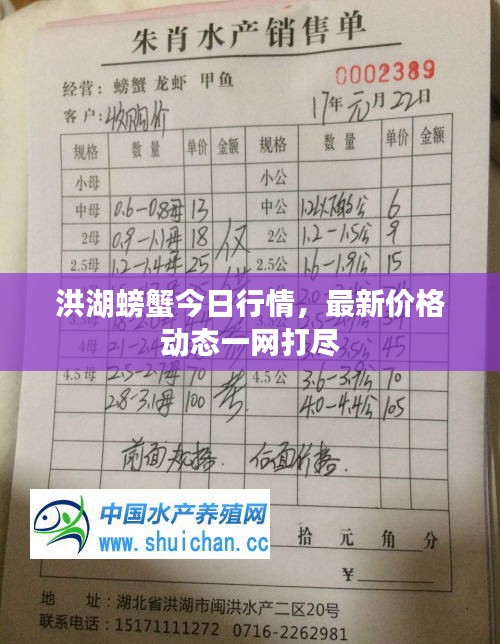 朱肖水产销售单
经营: 螃蟹 龙虾 甲鱼
0002389
客户: 收购价
17年元月22日
规格 数量 单价 金额 规格 数量 单价 金额
小母 小公
中母 0.6-0.8母 13 中公 1.2以下的公 6
2母 0.9-1.1母 18 仅 2公 1.2-1.5公 9
2.5母 1.2-1.4母 25 2.5公 1.6-1.9公 15
洪湖螃蟹今日行情，最新价格
动态一网打尽
45
4.5母 2.5-2.7母 70 4.5公 3.6-3.9公 70
2.8-3.1母 100 考 4.0-4.4公 105
前面规格. 后面价格.
中国水产养殖网
www.shuichan.cc
拾 元 角 分
¥
地 址: 湖北省洪湖市闽洪水产二区20号
联系电话: 15171111272 0716-2262981